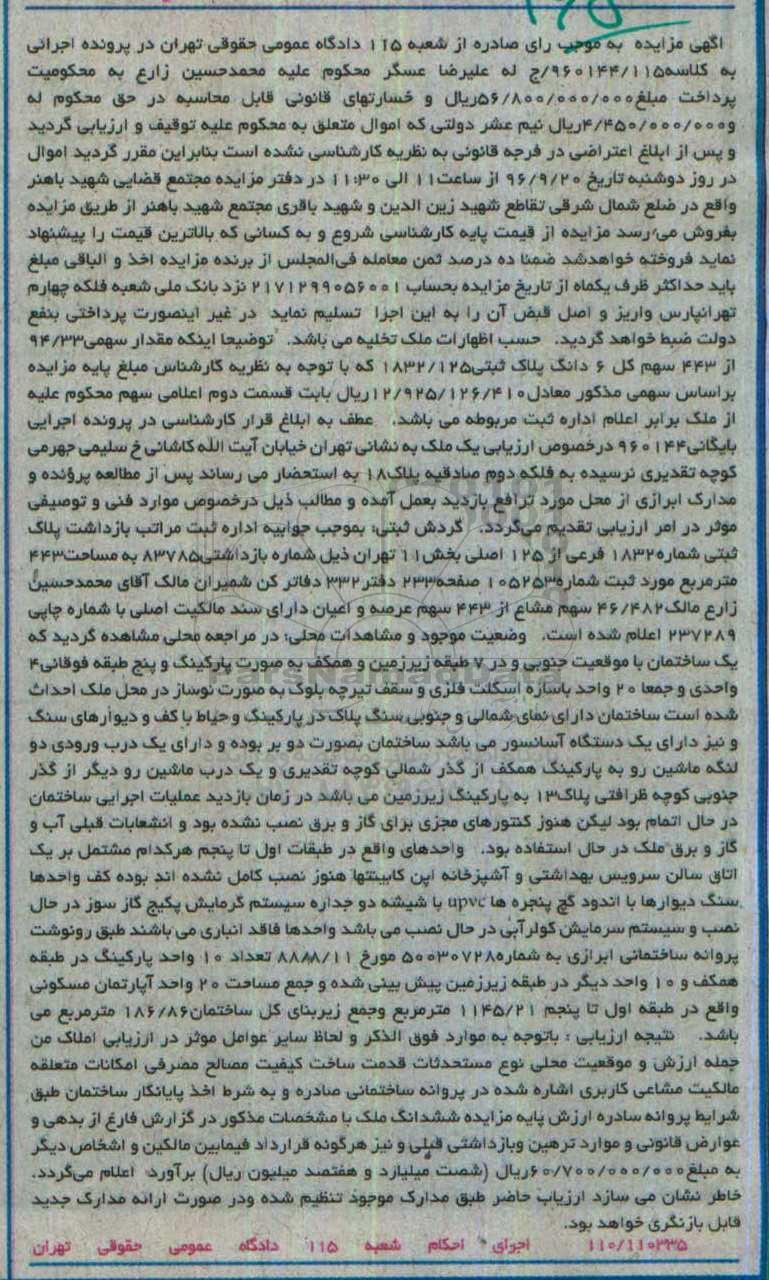 ۱۹۵
آگهی مزایده به موجب رای صادره از شعبه ۱۱۵ دادگاه عمومی حقوقی تهران در پرونده اجرائی
به کلاسه۹۶۰۱۴۴/۱۱۵/ج له علیرضا عسگر محکوم علیه محمدحسین زارع به محکومیت
پرداخت مبلغ۵۶/۸۰۰/۰۰۰/۰۰۰ریال و خسارتهای قانونی قابل محاسبه در حق محکوم له
و۴/۴۵۰/۰۰۰/۰۰۰ریال نیم عشر دولتی که اموال متعلق به محکوم علیه توقیف و ارزیابی گردید
و پس از ابلاغ اعتراضی در فرجه قانونی به نظریه کارشناسی نشده است بنابراین مقرر گردید اموال
در روز دوشنبه تاریخ ۹۶/۹/۲۰ از ساعت۱۱ الی ۱۱:۳۰ در دفتر مزایده مجتمع قضایی شهید باهنر
واقع در ضلع شمال شرقی تقاطع شهید زین الدین و شهید باقری مجتمع شهید باهنر از طریق مزایده
بفروش می رسد مزایده از قیمت پایه کارشناسی شروع و به کسانی که بالاترین قیمت را پیشنهاد
نماید فروخته خواهدشد ضمنا ده درصد ثمن معامله فی‌المجلس از برنده مزایده اخذ و الباقی مبلغ
باید حداکثر ظرف یکماه از تاریخ مزایده بحساب ۲۱۷۱۲۹۹۰۵۶۰۰۱ نزد بانک ملی شعبه فلکه چهارم
تهرانپارس واریز و اصل قبض آن را به این اجرا تسلیم نماید در غیر اینصورت پرداختی بنفع
دولت ضبط خواهد گردید. حسب اظهارات ملک تخلیه می باشد. توضیحا اینکه مقدار سهمی۹۴/۳۳
از ۴۴۳ سهم کل ۶ دانگ پلاک ثبتی۱۸۳۲/۱۲۵ که با توجه به نظریه کارشناس مبلغ پایه مزایده
براساس سهمی مذکور معادل۱۲/۹۲۵/۱۲۶/۴۱۰ریال بابت قسمت دوم اعلامی سهم محکوم علیه
از ملک برابر اعلام اداره ثبت مربوطه می باشد. عطف به ابلاغ قرار کارشناسی در پرونده اجرایی
بایگانی۹۶۰۱۴۴ درخصوص ارزیابی یک ملک به نشانی تهران خیابان آیت الله کاشانی خ سلیمی جهرمی
کوچه تقدیری نرسیده به فلکه دوم صادقیه پلاک۱۸ به استحضار می رساند پس از مطالعه پرونده و
مدارک ابرازی از محل مورد ترافع بازدید بعمل آمده و مطالب ذیل درخصوص موارد فنی و توصیفی
موثر در امر ارزیابی تقدیم می‌گردد. گردش ثبتی: بموجب جوابیه اداره ثبت مراتب بازداشت پلاک
ثبتی شماره۱۸۳۲ فرعی از ۱۲۵ اصلی بخش۱۱ تهران ذیل شماره بازداشتی۸۳۷۸۵ به مساحت۴۴۳
مترمربع مورد ثبت شماره۱۰۵۲۵۳ صفحه۲۳۳ دفتر۳۳۲ دفاتر کن شمیران مالک آقای محمدحسین
زارع مالک۴۶/۴۸۲ سهم مشاع از ۴۴۳ سهم عرصه و اعیان دارای سند مالکیت اصلی با شماره چاپی
۲۳۷۲۸۹ اعلام شده است. وضعیت موجود و مشاهدات محلی: در مراجعه محلی مشاهده گردید که
یک ساختمان با موقعیت جنوبی و در ۷ طبقه زیرزمین و همکف به صورت پارکینگ و پنج طبقه فوقانی۴
واحدی و جمعا ۲۰ واحد باسازه اسکلت فلزی و سقف تیرچه بلوک به صورت نوساز در محل ملک احداث
شده است ساختمان دارای نمای شمالی و جنوبی سنگ پلاک در پارکینگ و حیاط با کف و دیوارهای سنگ
و نیز دارای یک دستگاه آسانسور می باشد ساختمان بصورت دو بر بوده و دارای یک درب ورودی دو
لنگه ماشین رو به پارکینگ همکف از گذر شمالی کوچه تقدیری و یک درب ماشین رو دیگر از گذر
جنوبی کوچه ظرافتی پلاک۱۳ به پارکینگ زیرزمین می باشد در زمان بازدید عملیات اجرایی ساختمان
در حال اتمام بود لیکن هنوز کنتورهای مجزی برای گاز و برق نصب نشده بود و انشعابات قبلی آب و
گاز و برق ملک در حال استفاده بود. واحدهای واقع در طبقات اول تا پنجم هرکدام مشتمل بر یک
اتاق سالن سرویس بهداشتی و آشپزخانه اپن کابینتها هنوز نصب کامل نشده اند بوده کف واحدها
سنگ دیوارها با اندود گچ پنجره ها upvc با شیشه دو جداره سیستم گرمایش پکیج گاز سوز در حال
نصب و سیستم سرمایش کولرآبی در حال نصب می باشد واحدها فاقد انباری می باشند طبق رونوشت
پروانه ساختمانی ابرازی به شماره۵۰۰۳۰۷۲۸ مورخ ۸۸/۸/۱۱ تعداد ۱۰ واحد پارکینگ در طبقه
همکف و ۱۰ واحد دیگر در طبقه زیرزمین پیش بینی شده و جمع مساحت ۲۰ واحد آپارتمان مسکونی
واقع در طبقه اول تا پنجم ۱۱۴۵/۲۱ مترمربع وجمع زیربنای کل ساختمان۱۸۶/۸۶ مترمربع می
باشد. نتیجه ارزیابی : باتوجه به موارد فوق الذکر و لحاظ سایر عوامل موثر در ارزیابی املاک من
جمله ارزش و موقعیت محلی نوع مستحدثات قدمت ساخت کیفیت مصالح مصرفی امکانات متعلقه
مالکیت مشاعی کاربری اشاره شده در پروانه ساختمانی صادره و به شرط اخذ پایانکار ساختمان طبق
شرایط پروانه سادره ارزش پایه مزایده ششدانگ ملک با مشخصات مذکور در گزارش فارغ از بدهی و
عوارض قانونی و موارد ترهین وبازداشتی قبلی و نیز هرگونه قرارداد فیمابین مالکین و اشخاص دیگر
به مبلغ۶۰/۷۰۰/۰۰۰/۰۰۰ریال (شصت میلیارد و هفتصد میلیون ریال) برآورد اعلام می‌گردد.
خاطر نشان می سازد ارزیاب حاضر طبق مدارک موجود تنظیم شده ودر صورت ارائه مدارک جدید
قابل بازنگری خواهد بود.
۱۱۰/۱۱۰۳۳۵ اجرای احکام شعبه ۱۱۵ دادگاه عمومی حقوقی تهران
ParsNamadData